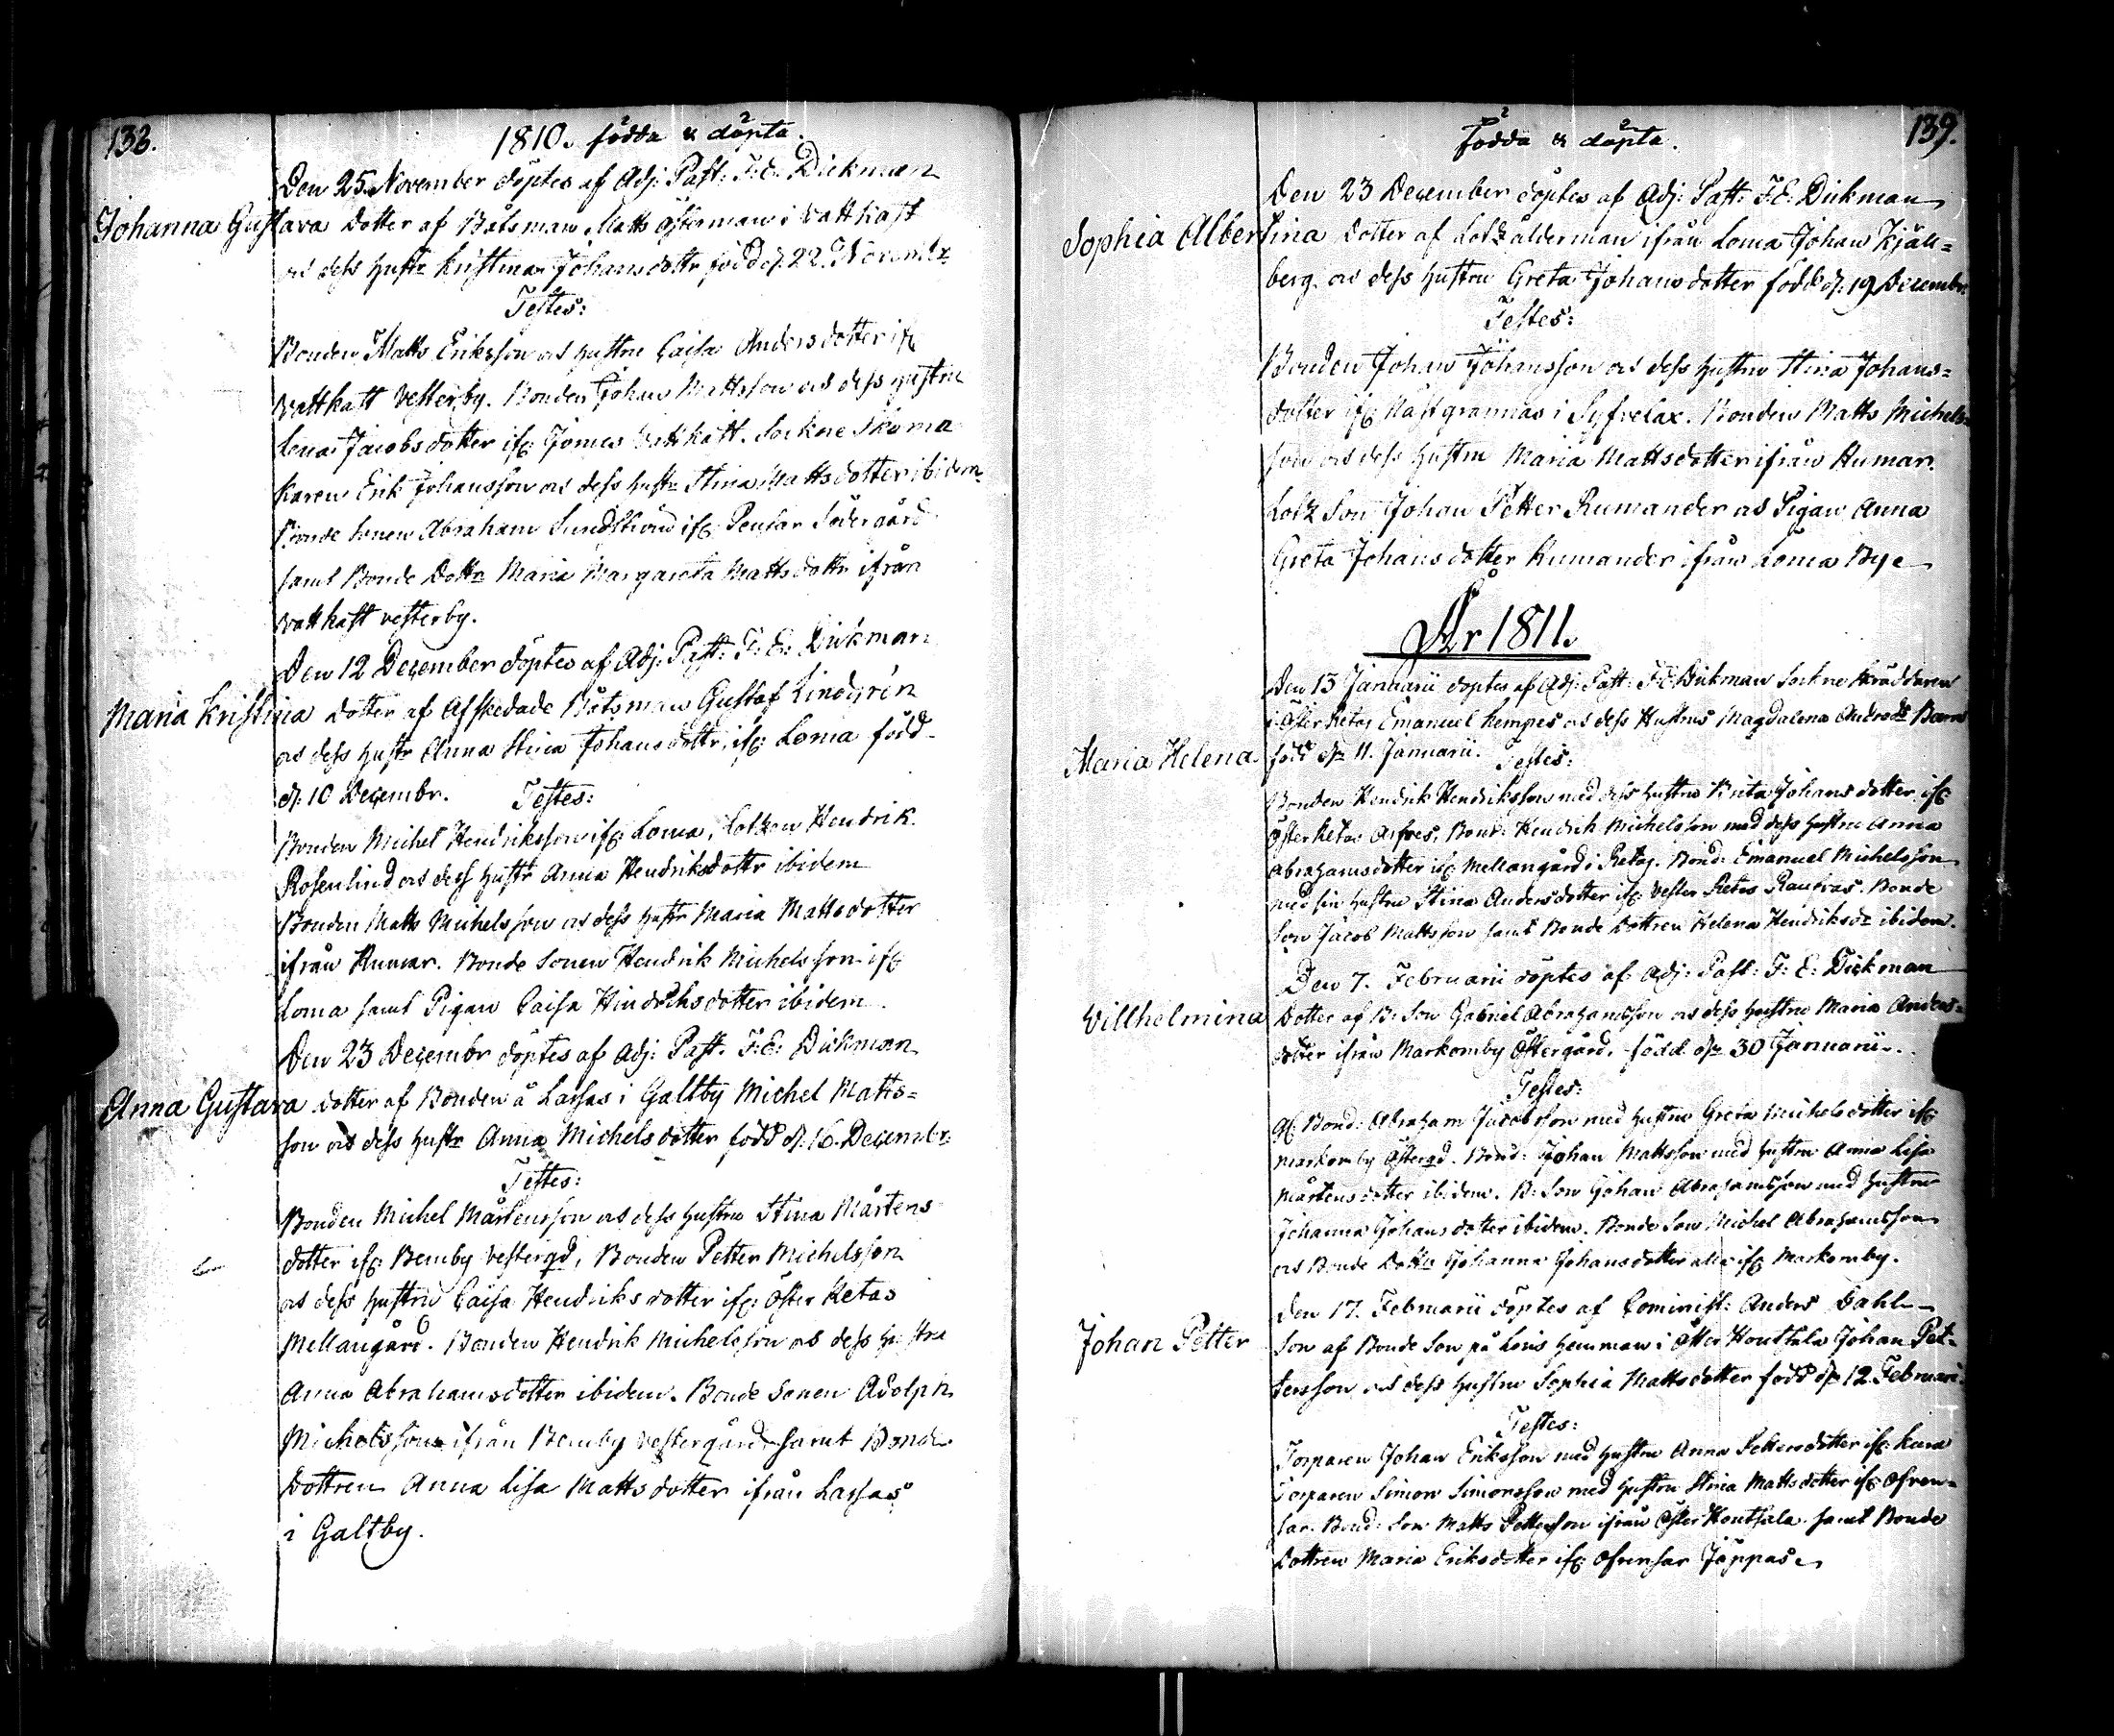 138.
1810. födda & döpta.
Den 25 November döptes af Adj: Past: F: E: Dickman
Johanna Gustava dotter af Båtsman Matts Österman i Vattkast
os dess hustr Kristina Johansdottr född d. 22. Novembr
Testes:
Bonden Matts Eriksson os hustru Caisa Andersdotter ifr
Vattkast Vesterby. Bonden Johan Mattsson os dess hustru
Lena Jacobsdotter ifr: Jonus Vattkast. Sockne Skoma
karen Erik Johansson os dess hustr Stina Mattsdotter ibidem
Bonde Sonen Abraham Sundström ifr: Pensar Södergård
samt Bonde Dottr Maria Margareta Mattsdottr ifrån
Vattkast vesterby.
Den 12 December döptes af Adj: Past: F: E: Dickman
Maria Kristina dotter af Afskedade Båtsman Gustaf Lindgrén
os dess hustr Anna Stina Johansdottr, ifr: Loma född
d. 10 Decembr. Testes:
Bonden Michel Hendriksson ifr: Loma, Lotzen Hendrik
Rosenlind os dess hustr Anna Hendriksdottr ibidem
Bonden Matts Michelsson os dess hustr Maria Mattsdotter
ifrån Rumar. Bonde Sonen Hendrik Michelsson ifr
Loma samt Pigan Caisa Hindrichsdotter ibidem.
Den 23 Decembr döptes af Adj: Past. F: E: Dickman
Anna Gustava dotter af Bonden å Lassas i Galtby Michel Matts-
son os dess hustr Anna Michelsdotter född d. 16. Decembr:
Testes:
Bonden Michel Mårtensson os dess hustru Stina Mårtens
dotter ifr: Bemby Vestergd, Bonden Petter Michelsson
os dess hustru Caisa Hendriksdotter ifr: Öster Retas
Mellangård. Bonden Hendrik Michelsson os dess hustru
Anna Abrahamsdotter ibidem. Bonde Sonen Adolph
Michelsson ifrån Bemby Vestergård samt Bonde
Dottren Anna Lisa Mattsdotter ifrån Lassas
i Galtby.
födda & döpta.
139.
Den 23 December döptes af Adj: Past: F: E: Dickman
Sophia Albertina dotter af Lotz ålderman ifrån Loma Johan Kjäll-
berg. os dess hustru Greta Johansdotter född d. 19 Decembr.
Testes:
Bonden Johan Johansson os dess hustru Stina Johans-
dotter ifr: Nästgrannas i Syfvelax. Bonden Matts Michels-
son os dess hustru Maria Mattsdotter ifrån Rumar.
Lotz Son Johan Petter Rumander os Pigan Anna
Greta Johansdotter Rumander ifrån Loma Bye
År 1811.
Den 13 Januarii döptes af Adj: Past: F: E: Dickman Sockne Skräddaren
i Öster Retas Emanuel Kempes os dess Hustrus Magdalena Andersdr Barn
Maria Helena född dn 11. Januarii. Testes:
Bonden Hendrik Hendriksson med dess hustru Brita Johansdotter ifr
Öster Retas Arfves, Bond: Hendrik Michelsson med dess hustru Anna
Abrahamsdotter ifr: Mellangård i Retas. Bond: Emanuel Michelsson
med sin hustru Stina Andersdotter ifr: Vester Retas Rautvas. Bonde
Son Jacob Mattsson samt Bonde Dottren Helena Hendriksdr ibidem.
Den 7. Februarii döptes af Adj: Past: F: E: Dickman
Villhelmina Dotter af B: Son Gabriel Abrahamsson os dess hustru Maria Anders-
dotter ifrån Markomby Östergård, född dn 30 Januarii.
Testes:
Gl Bond: Abraham Jacobsson med hustru Greta Michelsdotter ifr
Markomby Östergd. Bond: Johan Mattsson med hustru Anna Lisa
Mårtensdotter ibidem. B: Son Johan Abrahamsson med hustru
Johanna Johansdotter ibidem. Bonde Son Michel Abrahamsson
os Bonde Dottr Johanna Johansdotter alla ifr: Markomby.
Den 17. Februarii döptes af Cominist: Anders Dahl
Johan Petter Son af Bonde Son på Lois hemman i Öster Houtsala Johan Pet-
tersson os dess hustru Sophia Mattsdotter född dn 12 Februari
Testes:
Torparen Johan Eriksson med hustru Anna Pettersdotter ifr:
Torparen Simon Simonsson med hustru Stina Mattsdotter ifr: Ofven-
sar. Bond: Son Matts Pettersson ifrån Öster Houtsala samt Bonde
Dottren Maria Eriksdotter ifr: Ofvensar Jöppas.